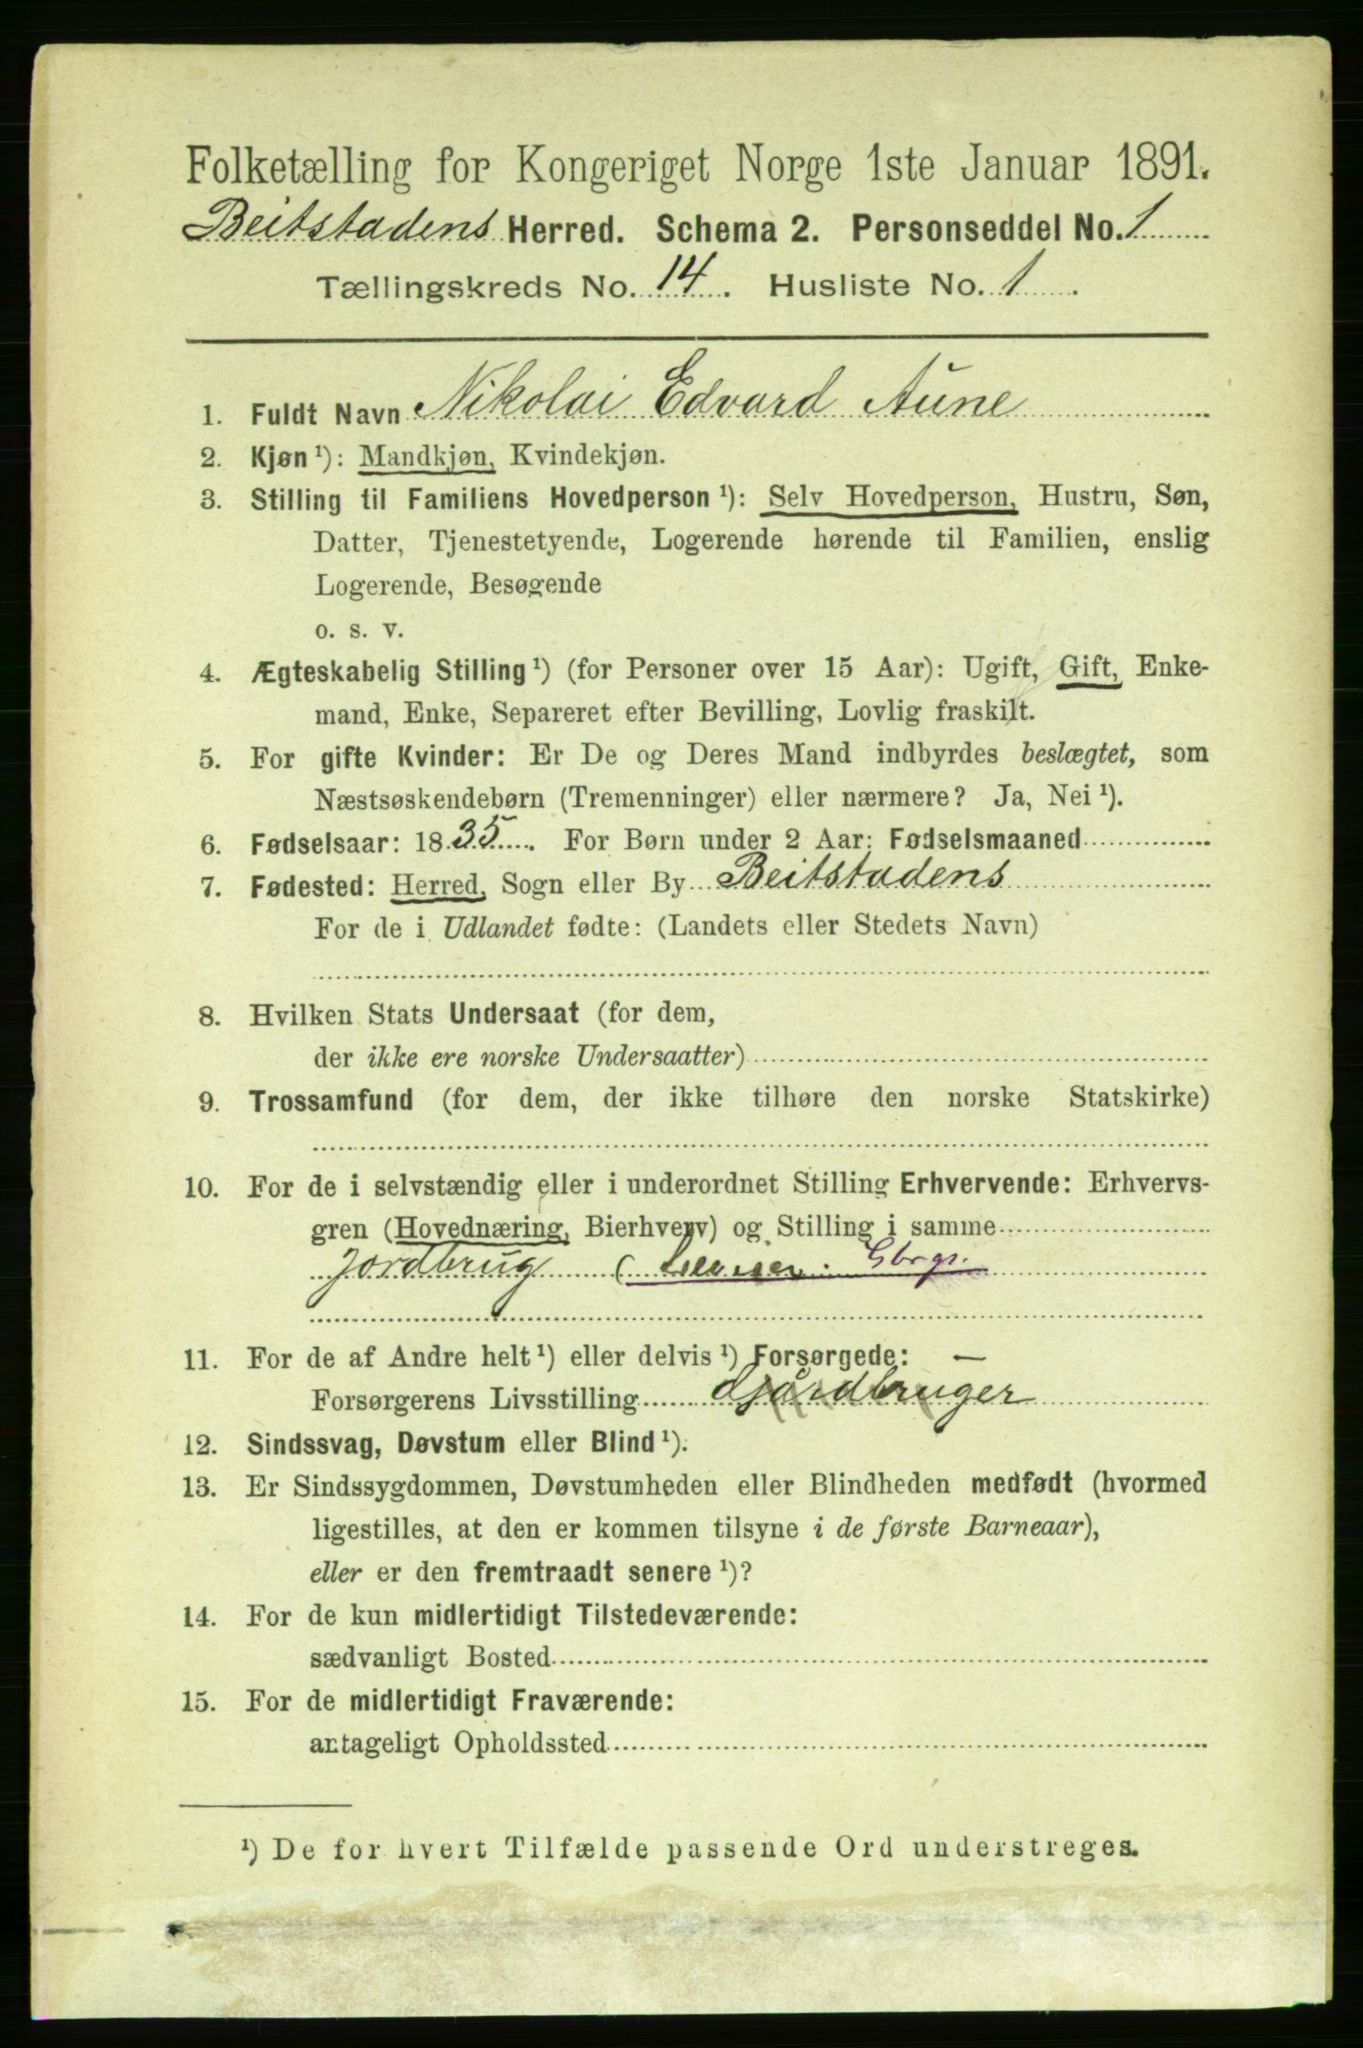 Folketælling for Kongeriget Norge 1ste Januar 1891.
Beitstadens Herred. Schema 2. Personseddel No. 1
Tællingskreds No. 14. Husliste No. 1.
1. Fuldt Navn Nikolai Edvard Aune
2. Kjøn ¹): Mandkjøn, Kvindekjøn.
3. Stilling til Familiens Hovedperson ¹): Selv Hovedperson, Hustru, Søn,
Datter, Tjenestetyende, Logerende hørende til Familien, enslig
Logerende, Besøgende
o. s. v.
4. Ægteskabelig Stilling ¹) (for Personer over 15 Aar): Ugift, Gift, Enke-
mand, Enke, Separeret efter Bevilling, Lovlig fraskilt.
5. For gifte Kvinder: Er De og Deres Mand indbyrdes beslægtet, som
Næstsøskendebørn (Tremenninger) eller nærmere? Ja, Nei ¹).
6. Fødselsaar: 1835. For Børn under 2 Aar: Fødselsmaaned
7. Fødested: Herred, Sogn eller By Beitstadens
For de i Udlandet fødte: (Landets eller Stedets Navn)
8. Hvilken Stats Undersaat (for dem,
der ikke ere norske Undersaatter)
9. Trossamfund (for dem, der ikke tilhøre den norske Statskirke)
10. For de i selvstændig eller i underordnet Stilling Erhvervende: Erhvervs-
gren (Hovednæring, Bierhverv) og Stilling i samme
Jordbrug ( Gbrgr.
11. For de af Andre helt ¹) eller delvis ¹) Forsørgede: —
Forsørgerens Livsstilling Gjårdbruger
12. Sindssvag, Døvstum eller Blind ¹).
13. Er Sindssygdommen, Døvstumheden eller Blindheden medfødt (hvormed
ligestilles, at den er kommen tilsyne i de første Barneaar),
eller er den fremtraadt senere ¹)?
14. For de kun midlertidigt Tilstedeværende:
sædvanligt Bosted
15. For de midlertidigt Fraværende:
antageligt Opholdssted
¹) De for hvert Tilfælde passende Ord understreges.